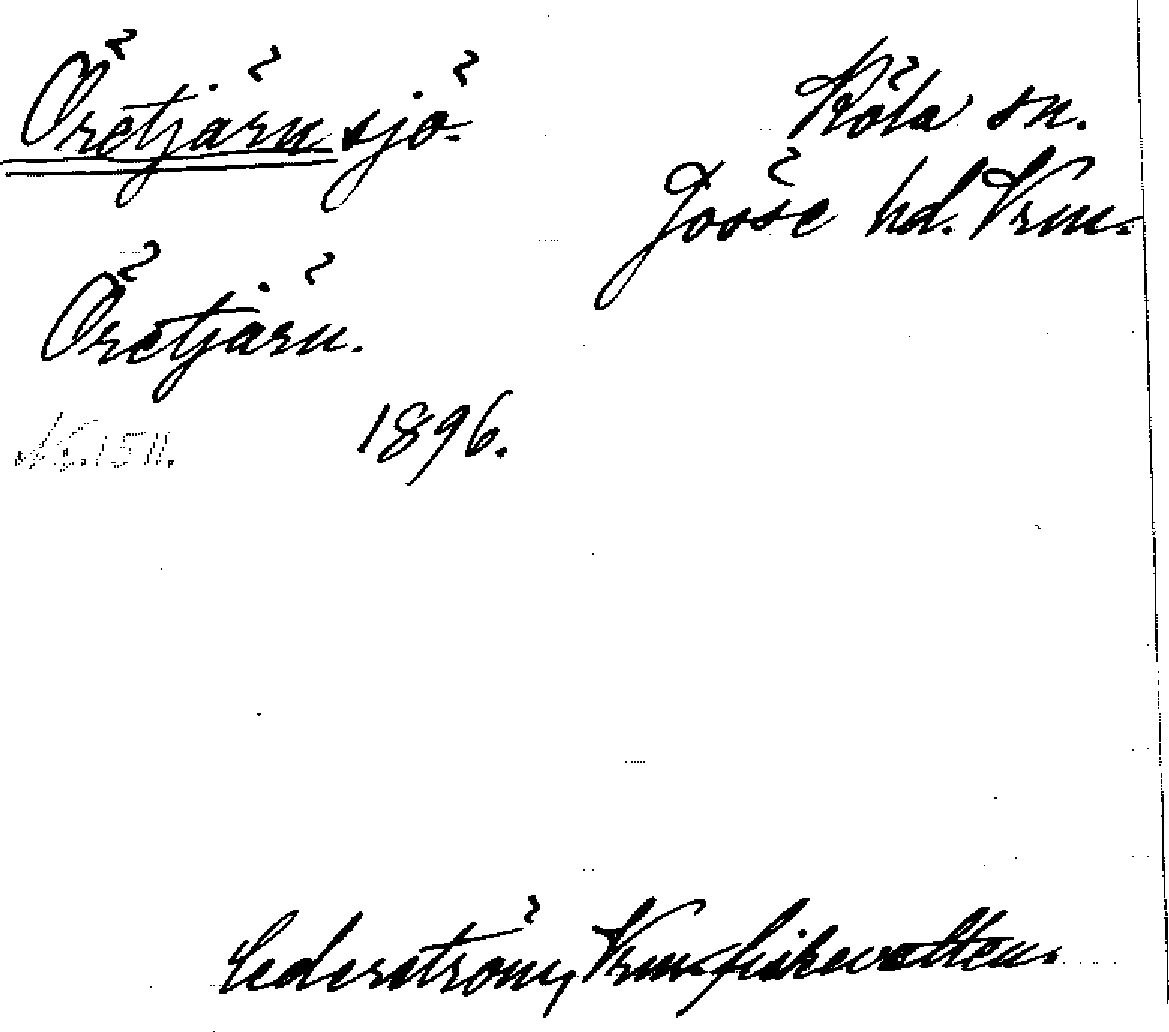 Öretjärn sjö. Köla sn.
Jösse hd. Vrm.
Öretjärn.
1896.
Cederström, Vrm. fiskevatten.